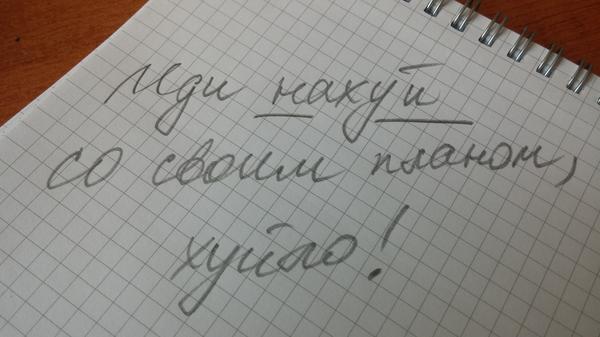 Иди нахуй
со своим планом,
хуйло!